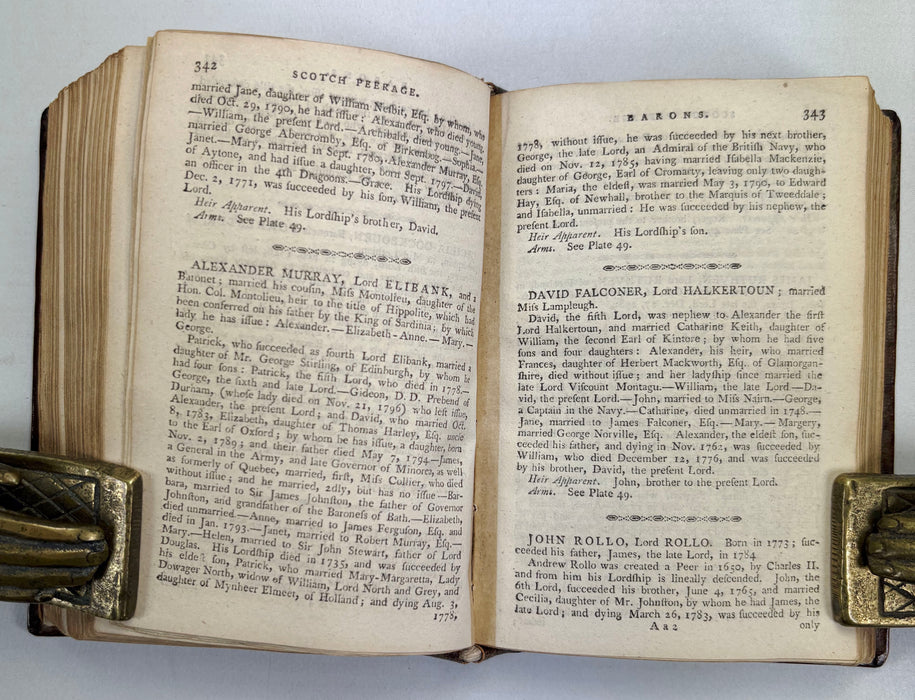 342
SCOTCH PEERAGE.
married Jane, daughter of William Nesbit, Esq. by whom, who
died Oct. 29, 1790, he had iſſue: Alexander, who died young.
—William, the preſent Lord.—Archibald, died young.—Jane,
married George Abercromby, Esq. of Birkenbog.—Sophia.—
Janet.—Mary, married in Sept. 1780, Alexander Murray, Eſq.
of Aytone, and had iſſue a daughter, born Sept. 1797.—David,
an officer in the 4th Dragoons.—Grace. His Lordſhip dying
Dec. 2, 1771, was ſucceeded by his ſon, William, the preſent
Lord.
Heir Apparent. His Lordſhip's brother, David.
Arms. See Plate 49.
ALEXANDER MURRAY, Lord ELIBANK, and a
Baronet; married his couſin, Miſs Montolieu, daughter of the
Hon. Col. Montolieu, heir to the title of Hippolite, which had
been conferred on his father by the King of Sardinia; by which
lady he has iſſue: Alexander.—Elizabeth-Anne.—Mary.—
George.
Patrick, who ſucceeded as fourth Lord Elibank, married a
daughter of Mr. George Stirling, of Edinburgh, by whom he
had four ſons: Patrick, the fifth Lord, who died in 1778.—
George, the ſixth and late Lord.—Gideon, D. D. Prebend of
Durham, (whoſe lady died on Nov. 21, 1796) who left iſſue,
Alexander, the preſent Lord; and David, who married Oct.
8, 1783, Elizabeth, daughter of Thomas Harley, Eſq. uncle
to the Earl of Oxford; by whom he has iſſue, a daughter, born
Nov. 2, 1789; and their father died May 7, 1794.—James,
a General in the Army, and late Governor of Minorca, as well
as formerly of Quebec, married, firſt, Miſs Collier, who died
without iſſue; and he married, 2dly, but has no iſſue—Bar-
bara, married to Sir James Johnſton, the father of Governor
Johnſton, and grandfather of the Baroneſs of Bath.—Elizabeth,
died unmarried.—Anne, married to James Ferguſon, Eſq. and
died in Jan. 1793.—Janet, married to Robert Murray, Eſq.—
Mary.—Helen, married to Sir John Stewart, father of Lord
Douglas. His Lordſhip died in 1735, and was ſucceeded by
his eldeſt ſon, Patrick, who married Mary-Margaretta, Lady
Dowager North, widow of William, Lord North and Grey, and
daughter of Mynheer Elmeet, of Holland; and dying Aug. 3,
1778,
BARONS.
343
1778, without iſſue, he was ſucceeded by his next brother,
George, the late Lord, an Admiral of the Britiſh Navy, who
died on Nov. 12, 1785, having married Iſabella Mackenzie,
daughter of George, Earl of Cromarty, leaving only two daugh-
ters: Maria, the eldeſt, was married May 3, 1790, to Edward
Hay, Esq. of Newhall, brother to the Marquis of Tweeddale;
and Iſabella, unmarried: He was ſucceeded by his nephew, the
preſent Lord.
Heir Apparent. His Lordſhip's ſon.
Arms. See Plate 49.
DAVID FALCONER, Lord HALKERTOUN; married
Miſs Lampleugh.
David, the fifth Lord, was nephew to Alexander the firſt
Lord Halkertoun, and married Catharine Keith, daughter of
William, the ſecond Earl of Kintore; by whom he had five
ſons and four daughters: Alexander, his heir, who married
Frances, daughter of Herbert Mackworth, Eſq. of Glamorgan-
ſhire, died without iſſue; and her ladyſhip since married the
late Lord Viſcount Montagu.—William, the late Lord—Da-
vid, the preſent Lord.—John, married to Miſs Nairn.—George,
a Captain in the Navy.—Catharine, died unmarried in 1748.—
Jane, married to James Falconer, Eſq.—Mary.—Margery,
married George Norville, Eſq. Alexander, the eldeſt ſon, ſuc-
ceeded his father, and dying in Nov. 1762, was ſucceeded by
William, who died December 12, 1776, and was ſucceeded
by his brother, David, the preſent Lord.
Heir Apparent. John, brother to the preſent Lord.
Arms. See Plate 49.
JOHN ROLLO, Lord ROLLO. Born in 1773; ſuc-
ceeded his father, James, the late Lord, in 1784
Andrew Rollo was created a Peer in 1650, by Charles II.
and from him his Lordſhip is lineally deſcended. John, the
6th Lord, ſucceeded his brother, June 4, 1765, and married
Cecilia, daughter of Mr. Johnſton, by whom he had James, the
late Lord; and dying March 26, 1783, was ſucceeded by his
A a 2
only